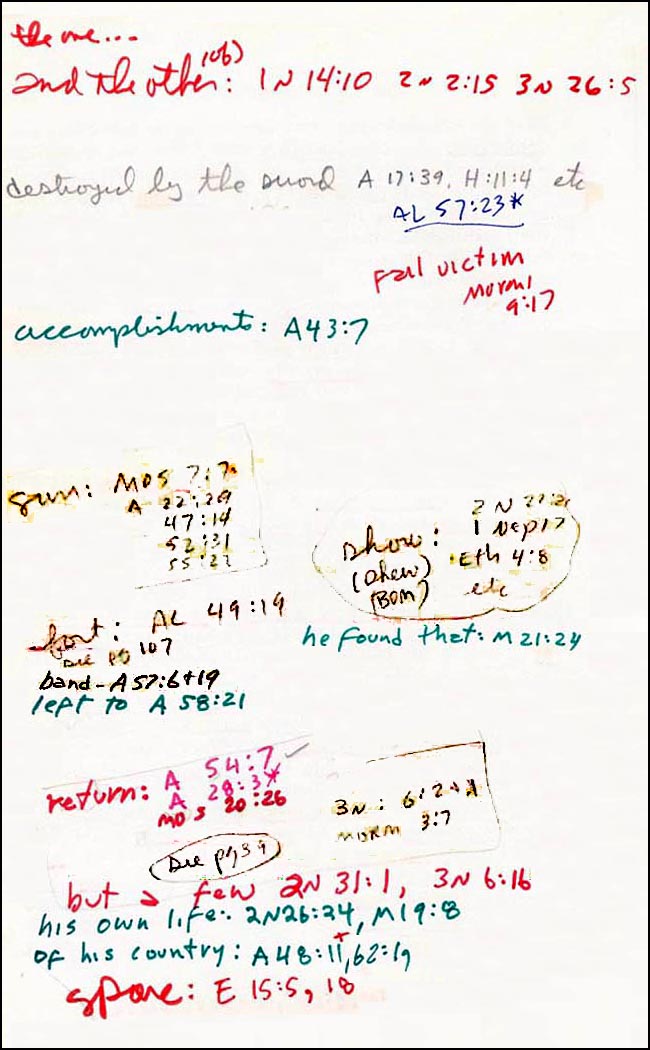 the one...
(ob)
and the other: 1N 14:10 2N 2:15 3N 26:5
destroyed by the sword A 17:39, H:11:4 etc
AL 57:23*
fall victim
Morm
9:17
accomplishments: A43:7
MOS 7:7
A 22:29
47:14
52:31
55:22
2 N
1 Nep17
show: Eth 4:8
(shew) etc
(BOM)
fort: AL 49:19
See pg 107
he found that: M21:24
band - A57:6+19
left to A 58:21
A 54:7 ✓
return: A 28:3*
MOS 20:26
3N: 6:2+
MORM 3:7
See pg 39
but a few 2N 31:1, 3N 6:16
his own life: 2N26:24, M19:8
of his country: A48:11+, 62:19
spare: E 15:5, 18